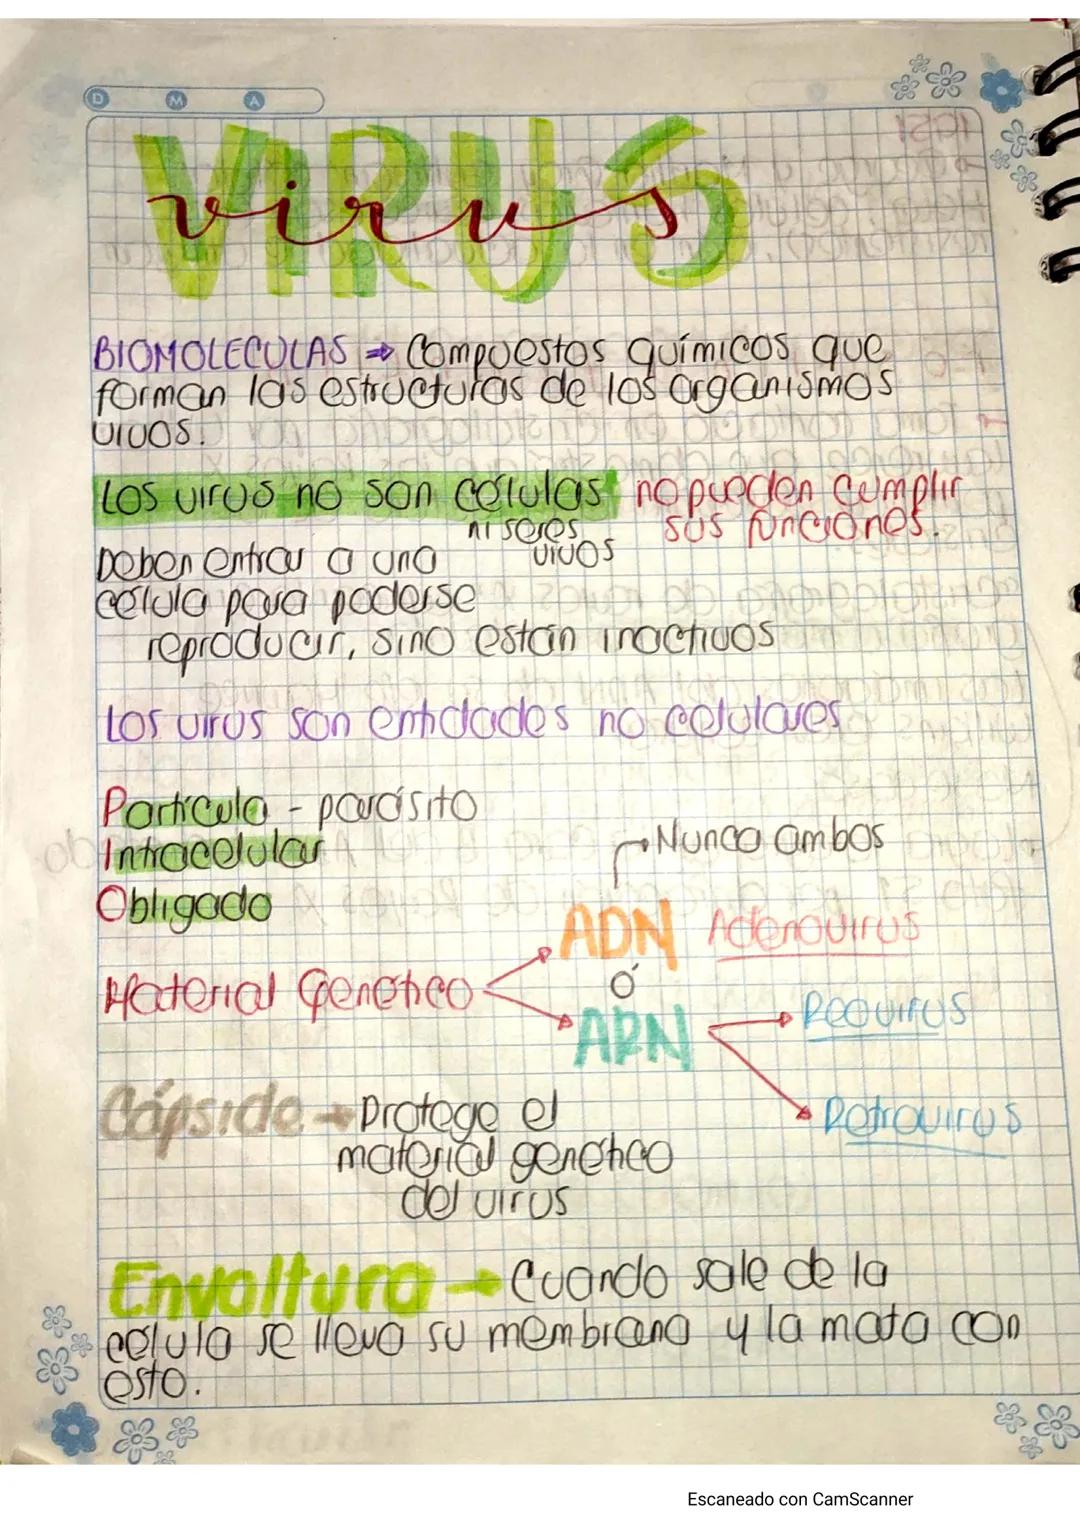 D M A
VIRUS
virus
BIOMOLECULAS → Compuestos químicos que
forman las estructuras de los organismos
vivos.
Los virus no son células no pueden cumplir
ni seres vivos sus funciones.
Deben entrar a una
célula para poderse
reproducir, sino están inactivos
Los virus son entidades no celulares
Partícula - parásito
Intracelular
Obligado
→ Nunca ambos
ADN Adenovirus
Material Genético
ó
ARN
→ Reovirus
→ Retrovirus
Cápside → Protege el
material genético
del virus
Envoltura → Cuando sale de la
célula se lleva su membrana y la mata con
esto.
Escaneado con CamScanner